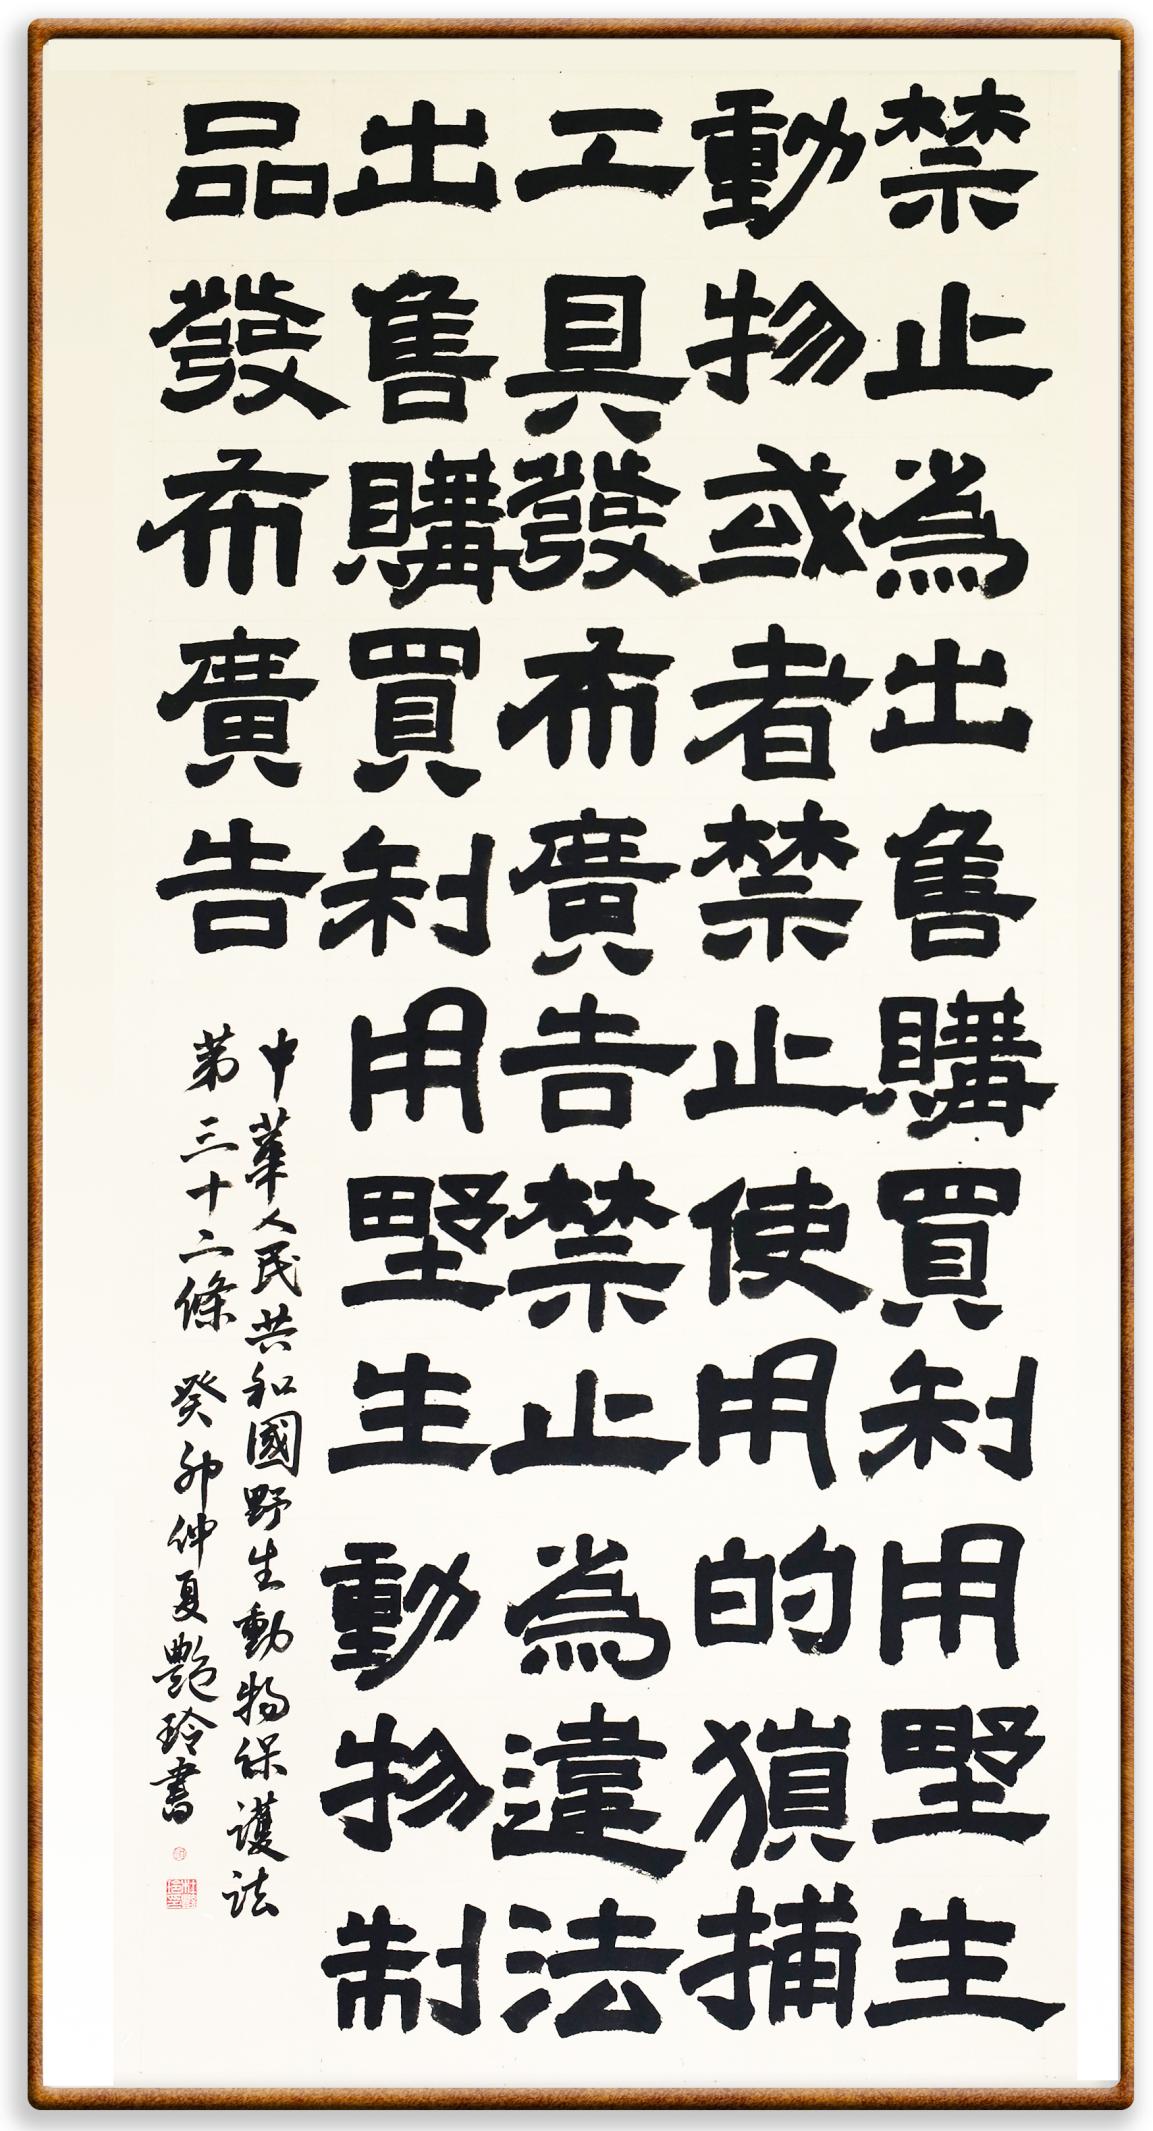 禁止為出售購買利用野生
動物或者禁止使用的獵捕
工具發布廣告禁止為違法
出售購買利用野生動物制
品發布廣告
中華人民共和國野生動物保護法
第三十二條 癸卯仲夏艷玲書